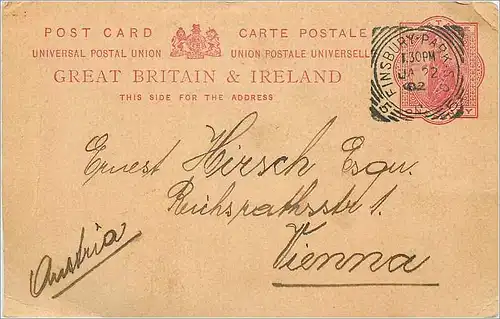 POST CARD CARTE POSTALE
UNIVERSAL POSTAL UNION UNION POSTALE UNIVERSELLE
GREAT BRITAIN & IRELAND
THIS SIDE FOR THE ADDRESS
FINSBURY-PARK
1.30PM
JA 22
02
Ernest Hirsch Esqu.
Reichsrathsstr 1.
Vienna
Austria